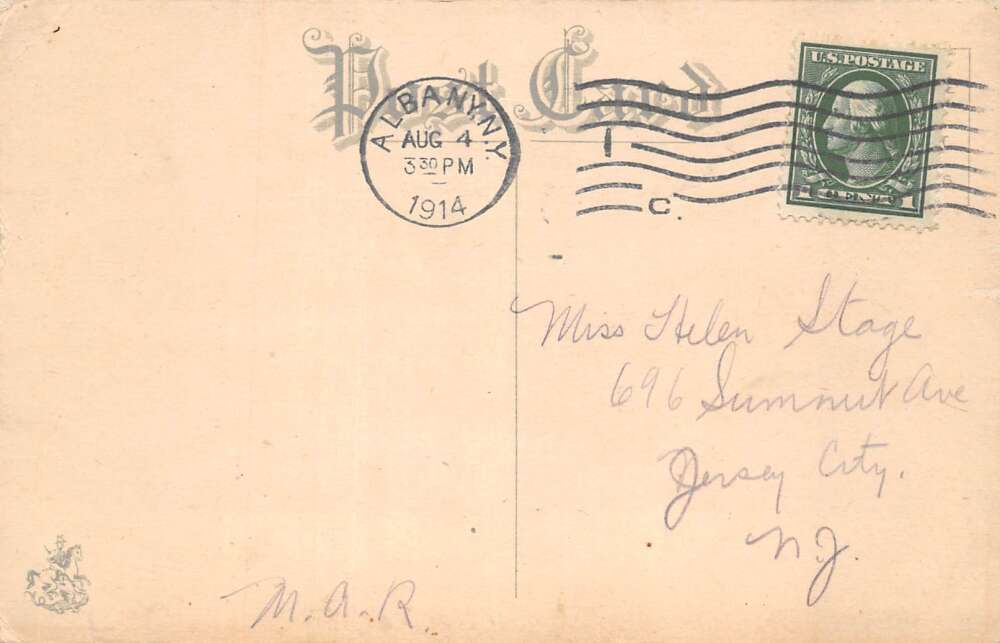 Post Card
ALBANY, N.Y.
AUG 4
3 30 PM
1914
1
C.
U.S. POSTAGE
1 CENT 1
Miss Helen Stage
696 Summit Ave
Jersey City.
N.J.
M.A.R.